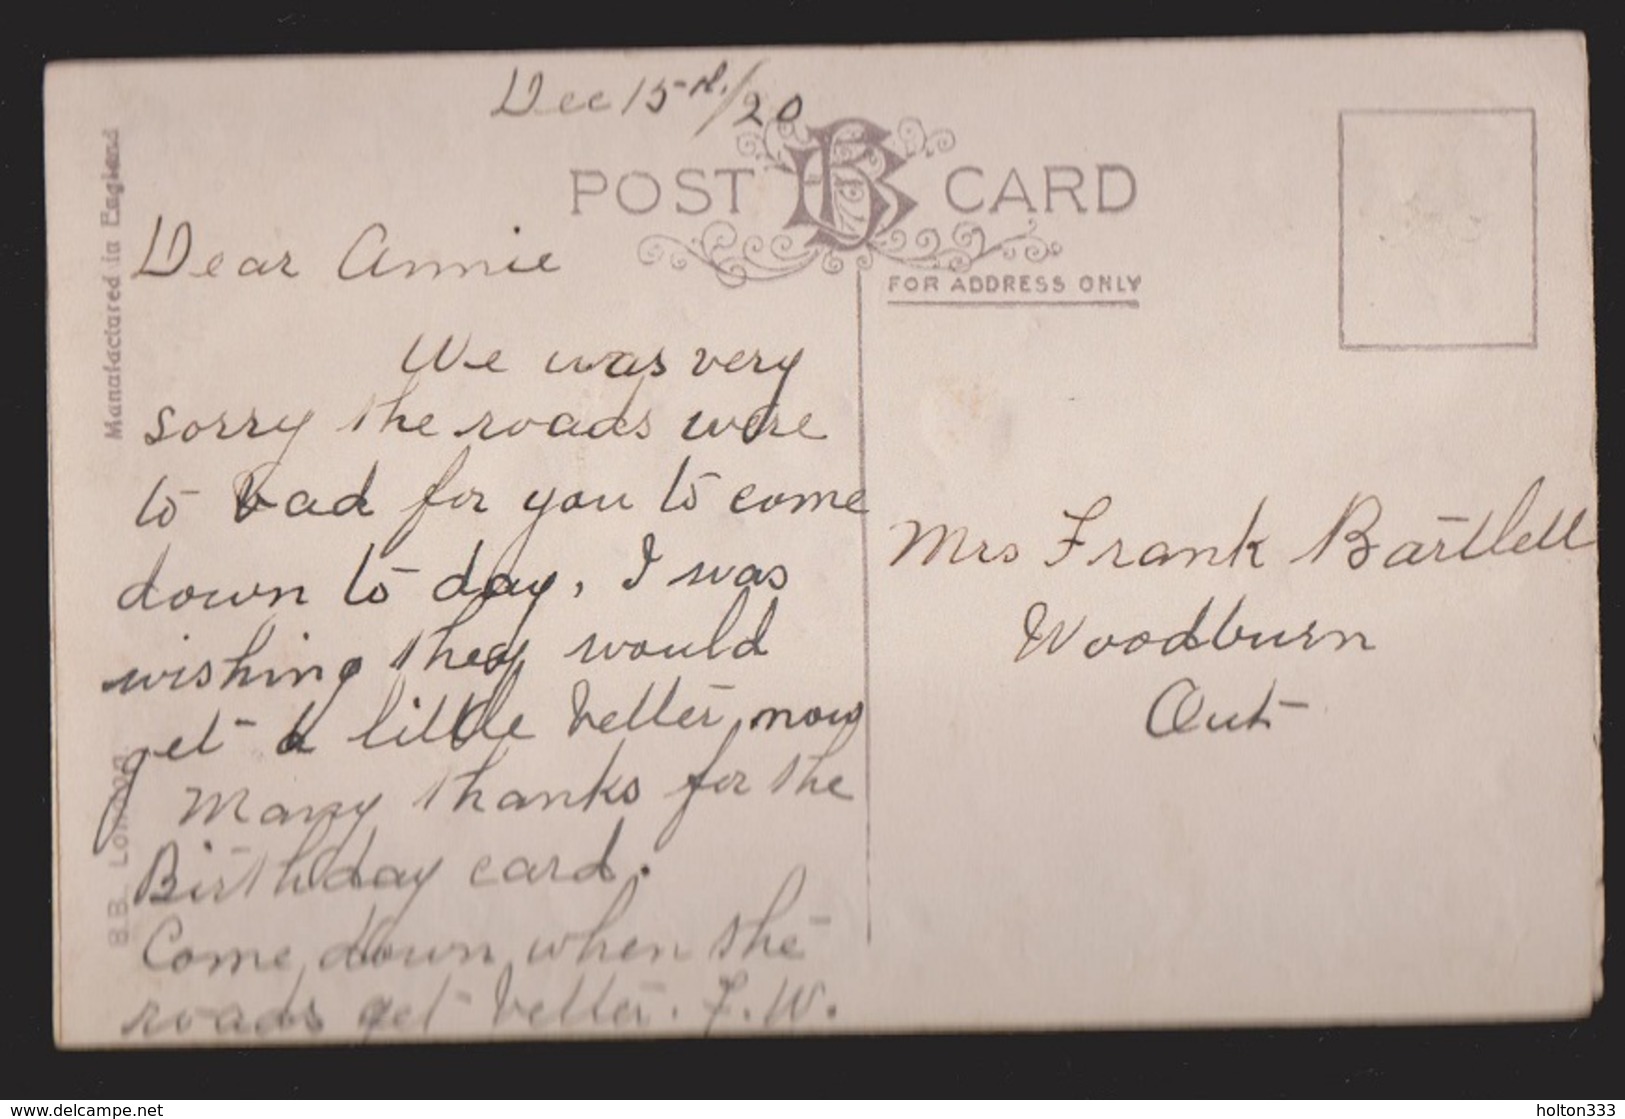 Dec 15th/20
POST CARD
FOR ADDRESS ONLY
Manufactured in England
B.B. London.
Dear Annie
We was very
sorry the roads were
to bad for you to come
down to day, I was
wishing they would
get a little better now
Many thanks for the
Birthday card.
Come down when the
roads get better. F. W.
Mrs Frank Bartlett
Woodburn
Ont
www.delcampe.net
holton333